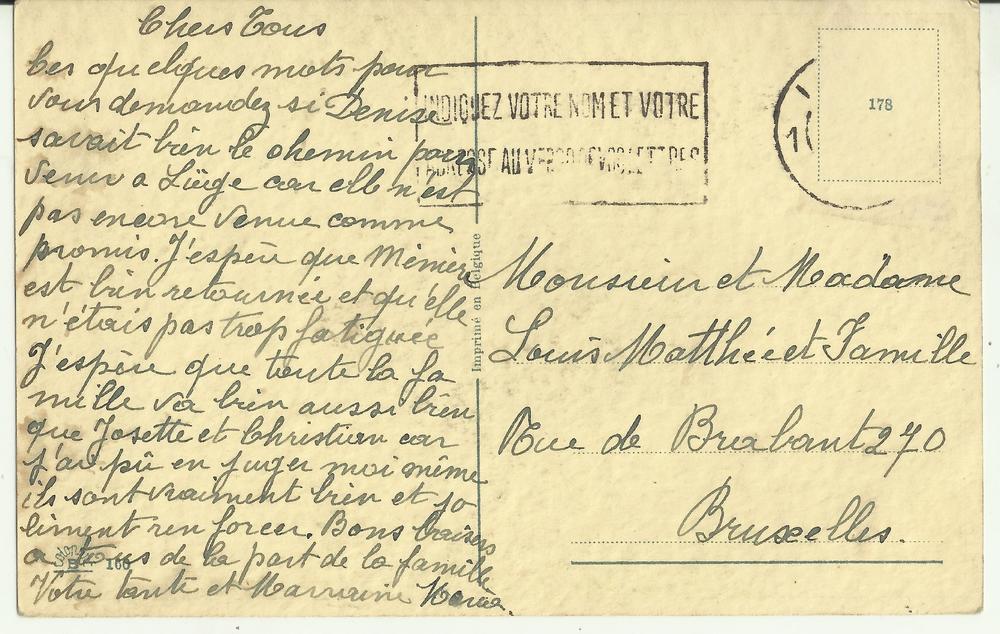 Chers Tous
Ces quelques mots pour
vour demandez si Denise
savait bien le chemin pour
venir a Liège car elle n'est
pas encore venue comme
promis. J'espère que Mémère
est bien retournée et qu'elle
n'étais pas trop fatiguée
J'espère que toute la fa
mille va bien aussi bien
que Josette et Christian car
j'ai pû en juger moi même
ils sont vraiment bien et jo
liment renforcer. Bons baisers
a tous de la part de la famille
Votre tante et Marraine Maria.
INDIQUEZ VOTRE NOM ET VOTRE
ADRESSE AU VERSO DE VOS LETTRES
178
1
Imprimé en Belgique
Monsieur et Madame
Louis Matthée et Famille
Rue de Brabant 270
Bruxelles.
166